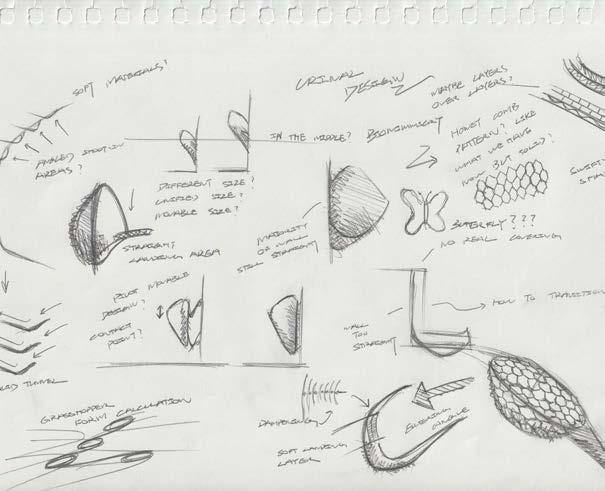 SOFT MATERIALS?
URINAL
DESIGN
MAYBE LAYERS
OVER LAYERS?
ANGLED
AREAS?
IN THE MIDDLE?
BIOMIMICRY
HONEY COMB
PATTERN? LIKE
WHAT WE HAVE
NOW BUT SOLID?
DIFFERENT SIZE?
UNIFIED SIZE?
MOVABLE SIZE?
STRAIGHT
LANDING AREA
MAJORITY
OF WALL
STILL STRAIGHT
BUTTERFLY???
NO REAL COVERING
PIVOT MOVABLE
DESIGN?
CONTACT
POINT?
WALL
TOO
STRAIGHT
HOW TO TRANSITION
TUNNEL
GRASSHOPPER
FORM CALCULATION
DAMPENING
SOFT LANDING
LAYER
ENTERING
ANGLE